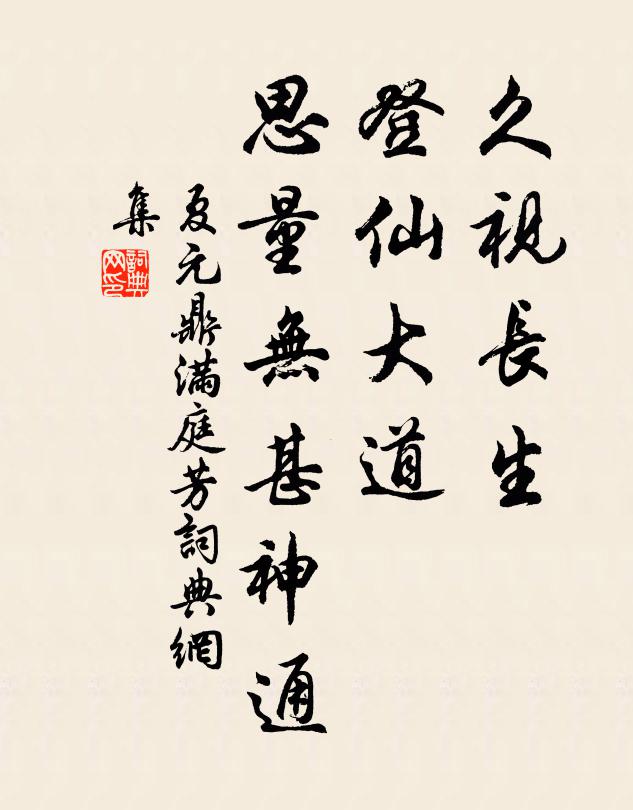 久視長生
登仙大道
思量無甚神通
夏元鼎滿庭芳詞典網
集
詞典
网印